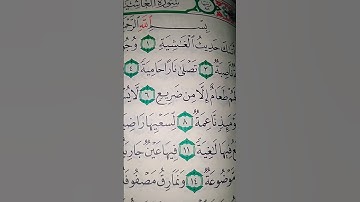 سُورَةُ الغَاشِيَة
بِسْمِ اللَّهِ الرَّحْمَ
كَ حَدِيثُ ٱلْغَٰشِيَةِ ١ وُجُو
نَّاصِبَةٌ ٣ تَصْلَىٰ نَارًا حَامِيَةً ٤
لَهُمْ طَعَامٌ إِلَّا مِن ضَرِيعٍ ٦ لَّا يُ
وْمَئِذٍ نَّاعِمَةٌ ٨ لِّسَعْيِهَا رَاضِيَ
عُ فِيهَا لَٰغِيَةً ١١ فِيهَا عَيْنٌ جَارِيَ
مَّوْضُوعَةٌ ١٤ وَنَمَارِقُ مَصْفُوفَ